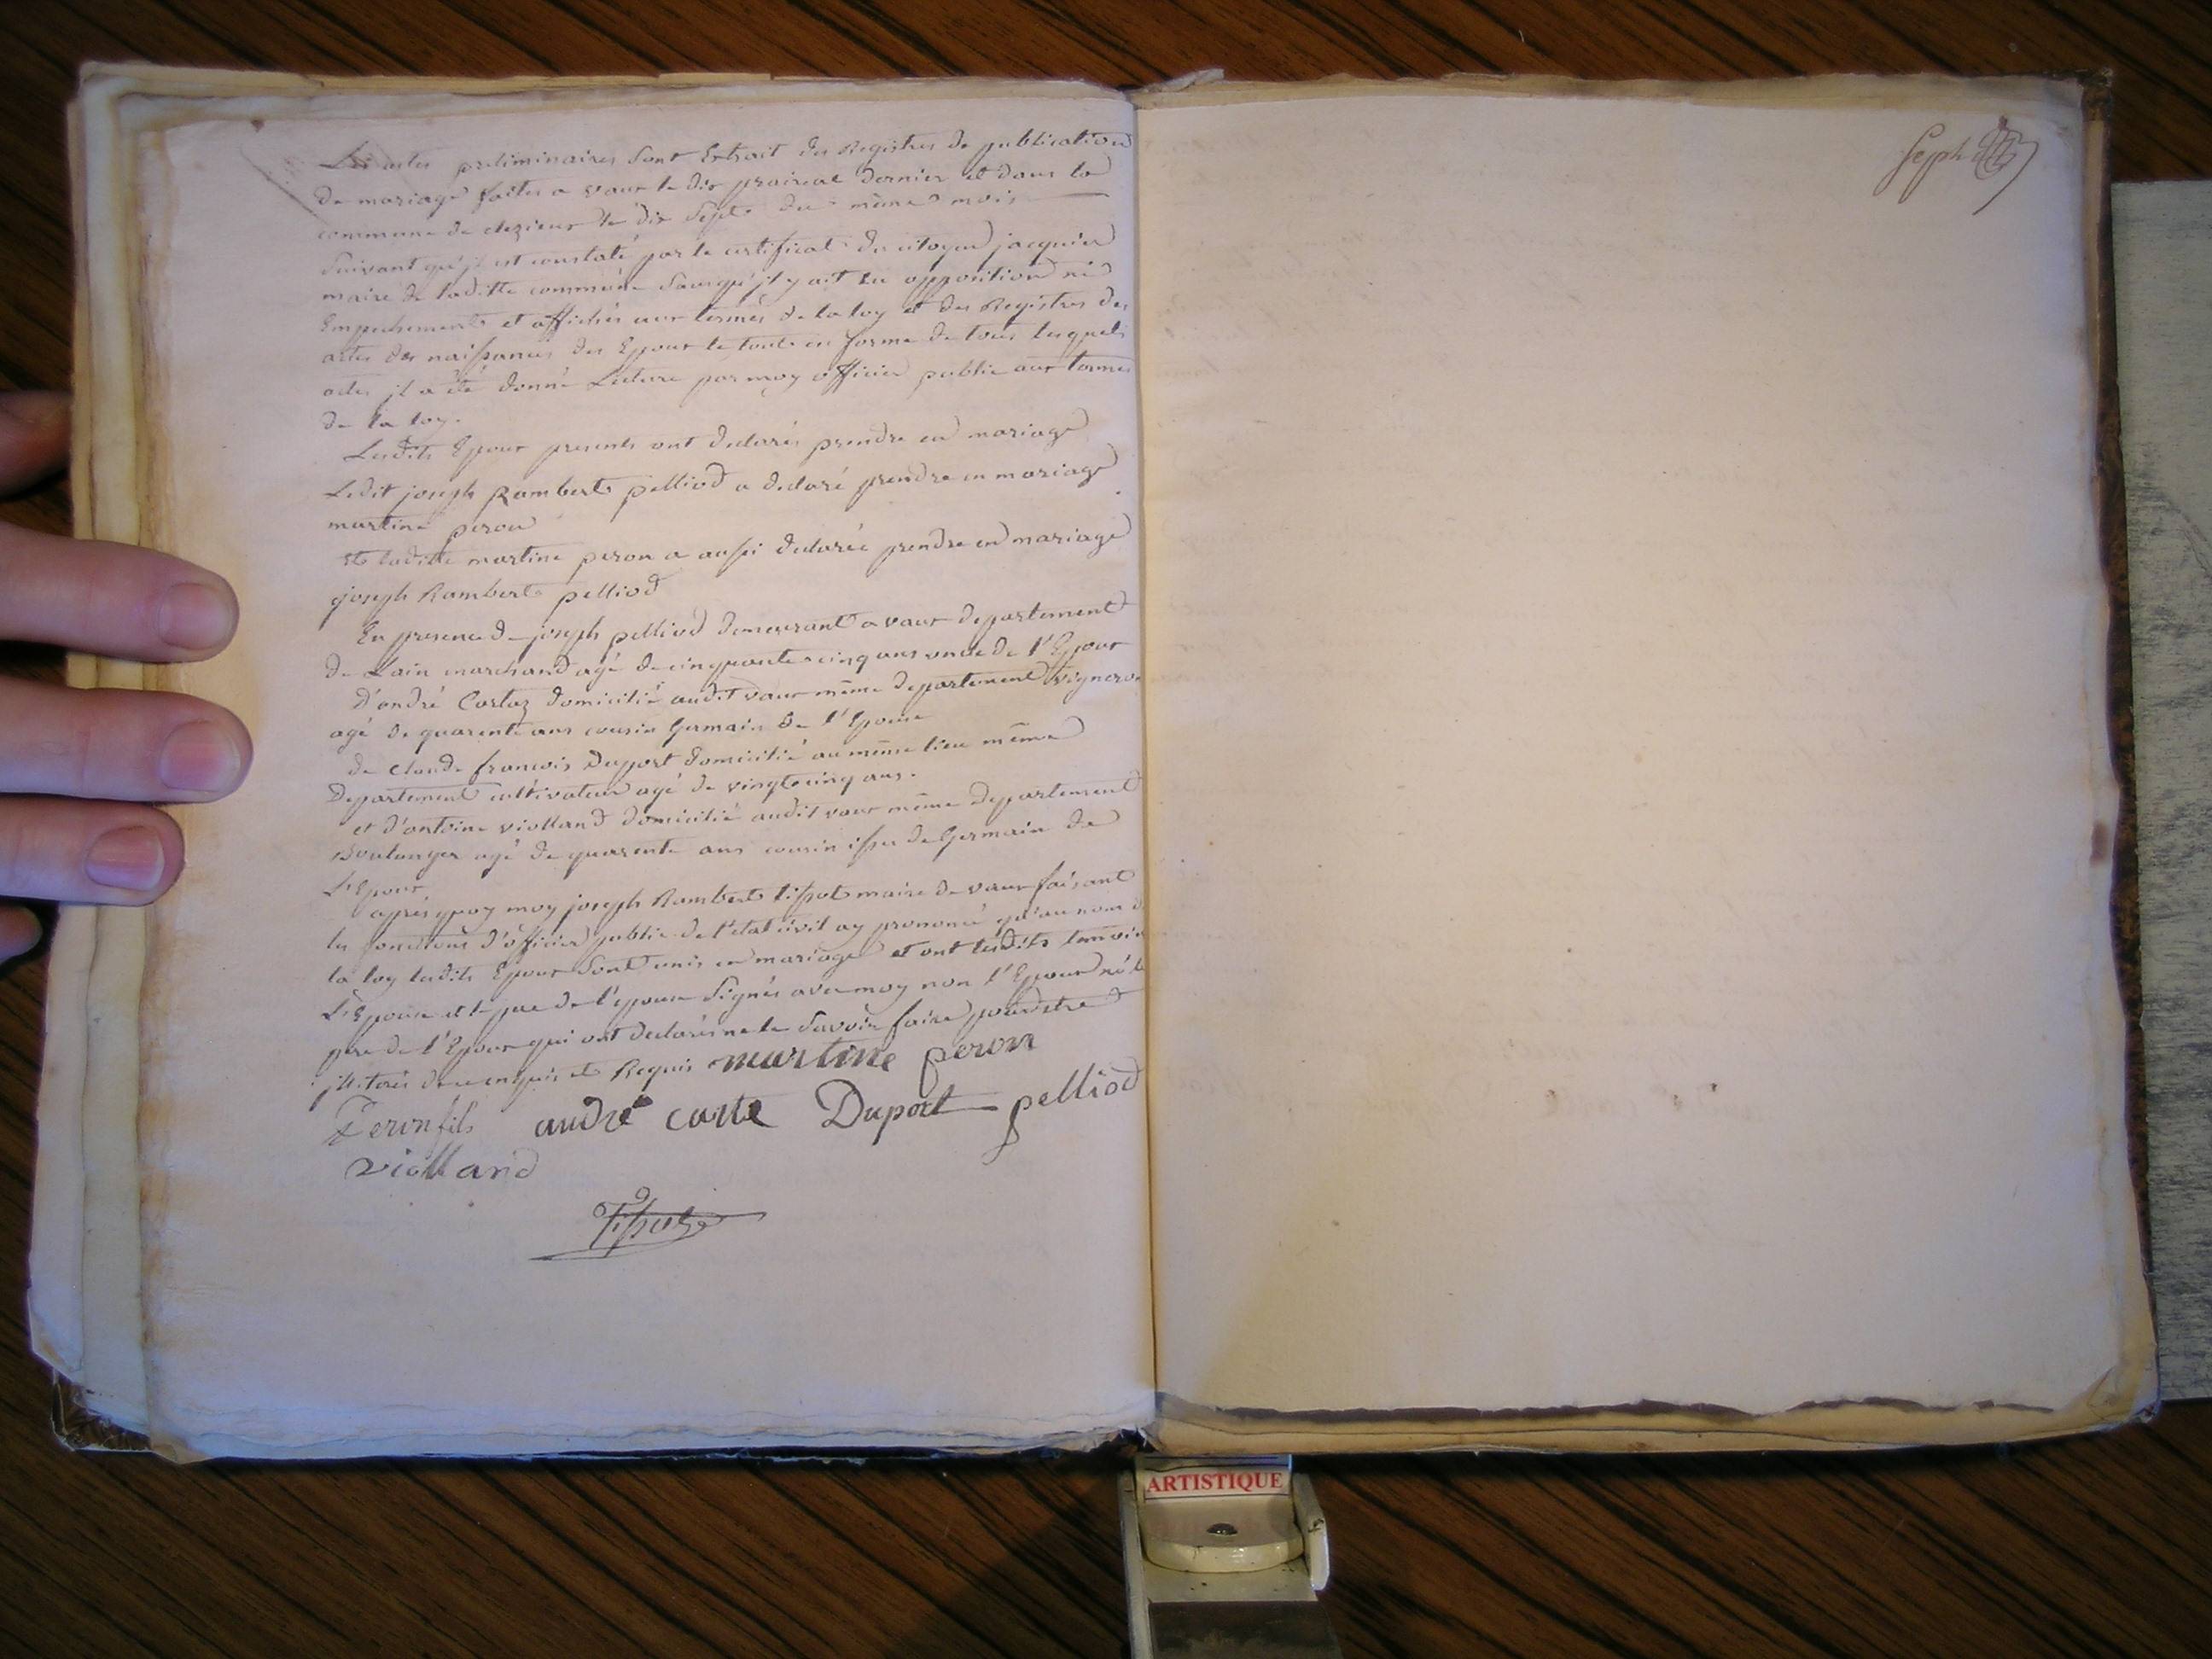 Les actes preliminaires sont Extrait des Registres de publication
de mariage faites a vaux le dix prairial dernier et dans la
commune de cleyzieux le dix sept du même mois
suivant qu'jl est constaté par le certificat du citoyen jacquier
maire de laditte commune sans qu'jl y ait eu opposition ni
Empechements et affichés aux termes de la loy et des Registres des
actes des naissances des Epoux le tout en forme de tous lesquels
actes jl a été donné Lecture par moy officier public aux termes
de la loy.
Lesdits Epoux presents ont declarés prendre en mariage
Ledit joseph Rambert pelliod a declaré prendre en mariage
martine peron
et laditte martine peron a aussi declarée prendre en mariage
joseph Rambert pelliod
En presence de joseph pelliod demeurant a vaux departement
de Lain marchand agé de cinquante cinq ans oncle de l'Epoux
D'andré Cortaz domicilié audit vaux même departement vigneron
agé de quarente ans cousin Germain de l'Epouse
de claude francois Duport domicilié au même lieu même
Departement cultivateur agé de vingt cinq ans.
et d'antoine violland domicilié audit vaux même departement
Boulanger agé de quarente ans cousin issu de Germain de
L'Epoux
après quoy moy joseph Rambert tissot maire de vaux faisant
les fonctions d'officier public de l'état civil ay prononcé qu'au nom de
la loy lesdits Epoux sont unis en mariage et ont lesdits temoins
L'Epouse et le pere de l'epouse signés avec moy non l'Epoux ni le
pere de l'Epoux qui ont declarés ne le savoir faire pour être
jlliterés de ce enquis et Requis martine peron
Peron fils andré carte Duport pelliod
violland
Tissot